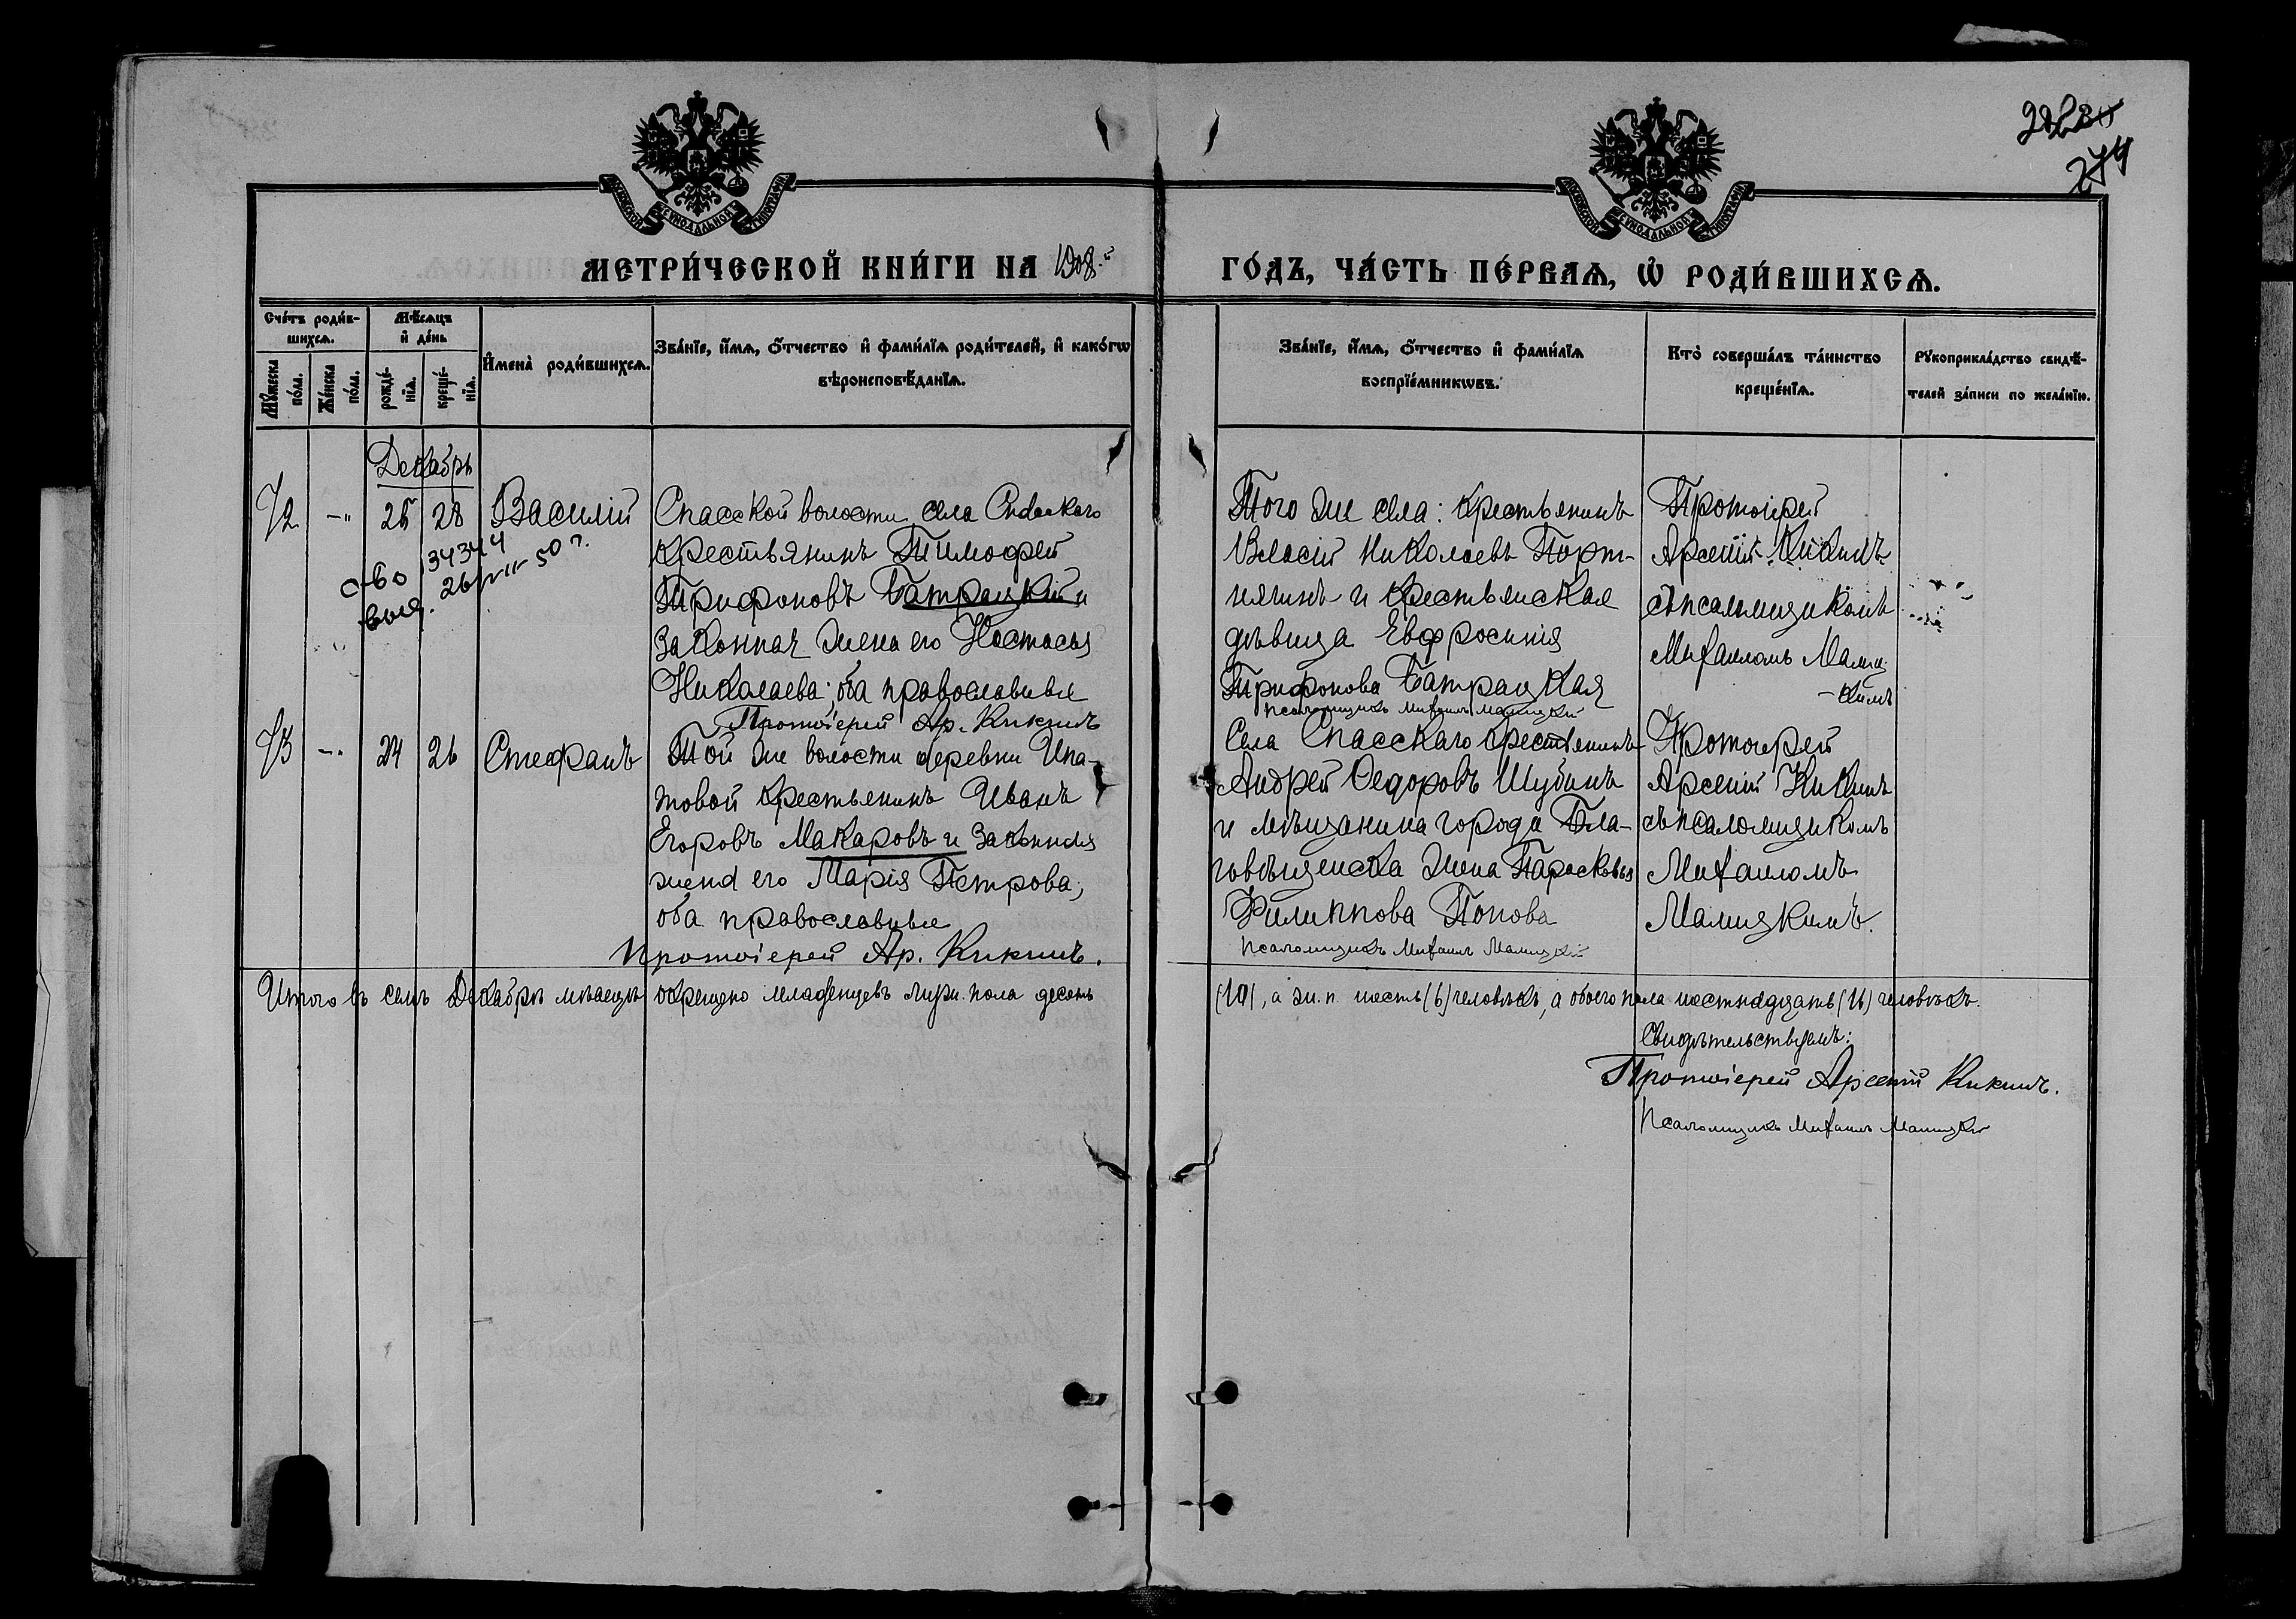 МОСКОВСКОЙ СѴНОДАЛЬНОЙ ТИПОГРАФІИ
МОСКОВСКОЙ СѴНОДАЛЬНОЙ ТИПОГРАФІИ
274
МЕТРИ́ЧЕСКОЙ КНИ́ГИ НА 1908.й
ГО́ДЪ, ЧА́СТЬ ПЕ́РВАѦ, Ѡ҆ РОДИ́ВШИХСѦ.
Сче́тъ роди́в-
шихсѧ.
Мꙋ́жеска по́ла.
Же́нска по́ла.
Мѣ́сѧцъ
и҆ де́нь
рожде́-
нїѧ.
креще́-
нїѧ.
И҆мена̀ роди́вшихсѧ.
Зва́нїе, и҆́мѧ, ѻ҆́тчество и҆ фами́лїѧ роди́телей, и҆ како́гѡ
вѣроисповѣ́данїѧ.
Зва́нїе, и҆́мѧ, ѻ҆́тчество и҆ фами́лїѧ
воспрїе́мникѡвъ.
Кто̀ соверша́лъ та́инство
креще́нїѧ.
Рꙋкоприкла́дство свидѣ́-
телей за́писи по жела́нїю.
Декабрь
72 -" 25 28 Василій
с-во 34344
выд. 26/VII 50 г.
Спасской волости села Спасскаго
крестьянинъ Тимофей
Трифоновъ Батрацкій и
законная жена его Настасья
Николаева; оба православные
Протоіерей Ар. Кикинъ
Того же села: крестьянинъ
Власій Николаевъ Порт-
нягинъ и крестьянская
дѣвица Евфросинія
Трифонова Батрацкая
Псаломщикъ Михаилъ Малицкій
Протоіерей
Арсеній Кикинъ
съ псаломщикомъ
Михаиломъ Малиц-
-кимъ
73 -" 24 26 Стефанъ
Той же волости деревни Ипа-
товой крестьянинъ Иванъ
Егоровъ Макаровъ и законная
жена его Марія Петрова;
оба православные
Протоіерей Ар. Кикинъ.
Села Спасскаго крестьянинъ
Андрей Федоровъ Шубинъ
и мѣщанина города Бла-
говѣщенска жена Парасковья
Филиппова Попова
Псаломщикъ Михаилъ Малицкій
Протоіерей
Арсеній Кикинъ
съ псаломщикомъ
Михаиломъ
Малицкимъ.
Итого въ семъ Декабрѣ мѣсяцѣ окрещено младенцевъ муж. пола десять
(10), а ж. п. шесть (6) человѣкъ, а обоего пола шестнадцать (16) человѣкъ.
Свидѣтельствуемъ:
Протоіерей Арсеній Кикинъ.
Псаломщикъ Михаилъ Малицкій